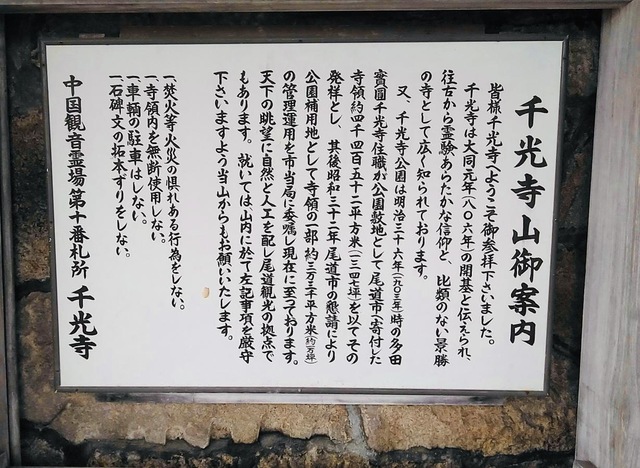 千光寺山御案内
皆様千光寺へようこそ御参拝下さいました。
千光寺は大同元年(八〇六年)の開基と伝えられ、
往古から霊験あらたかな信仰と、比類のない景勝
の寺として広く知られております。
又、千光寺公園は明治三十六年(一九〇三年)時の多田
實圓千光寺住職が公園敷地として尾道市へ寄付した
寺領約四千四百五十二平方米(一三四七坪)を以てその
発祥とし、其後昭和三十二年尾道市の懇請により
公園補用地として寺領の一部約三万三千平方米(約一万坪)
の管理運用を市当局に委嘱し現在に至っております。
天下の眺望に自然と人工を配し尾道観光の拠点で
もあります。就いては山内に於て左記事項を厳守
下さいますよう当山からもお願いいたします。
一、焚火等火災の惧れある行為をしない。
一、寺領内を無断使用しない。
一、車輌の駐車はしない。
一、石碑文の拓本ずりをしない。
中国観音霊場第十番札所 千光寺